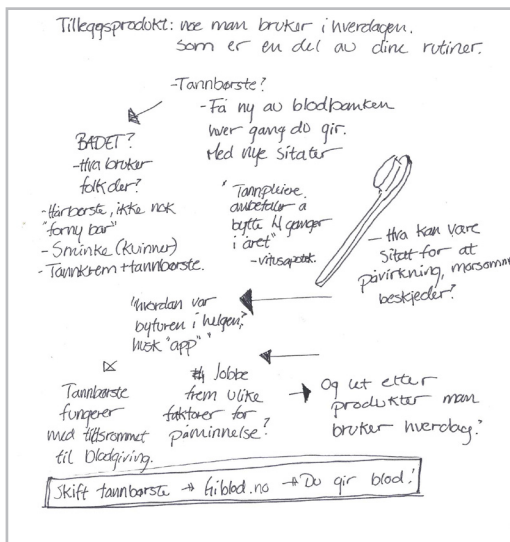 Tilleggsprodukt: noe man bruker i hverdagen.
som er en del av dine rutiner.
-Tannbørste?
-Få ny av blodbanken
hver gang du gir.
Med nye sitater
BADET?
-Hva bruker
folk der?
-Hårbørste, ikke nok
"fornybar"
- Sminke (kvinner)
- Tannkrem + tannbørste.
"Tannpleiere
anbefaler å
bytte 4 ganger
i året"
- vitusapotek.
- Hva kan være
Sitat for at
påvirkning, morsomme
beskjeder?
"hvordan var
byturen i helgen,
husk "app""
Tannbørste
fungerer
med
til blodgiving.
Jobbe
frem ulike
faktorer for
påminnelse?
Og let etter
produkter man
bruker hverdag?
Skift tannbørste → Giblod.no → Du gir blod!